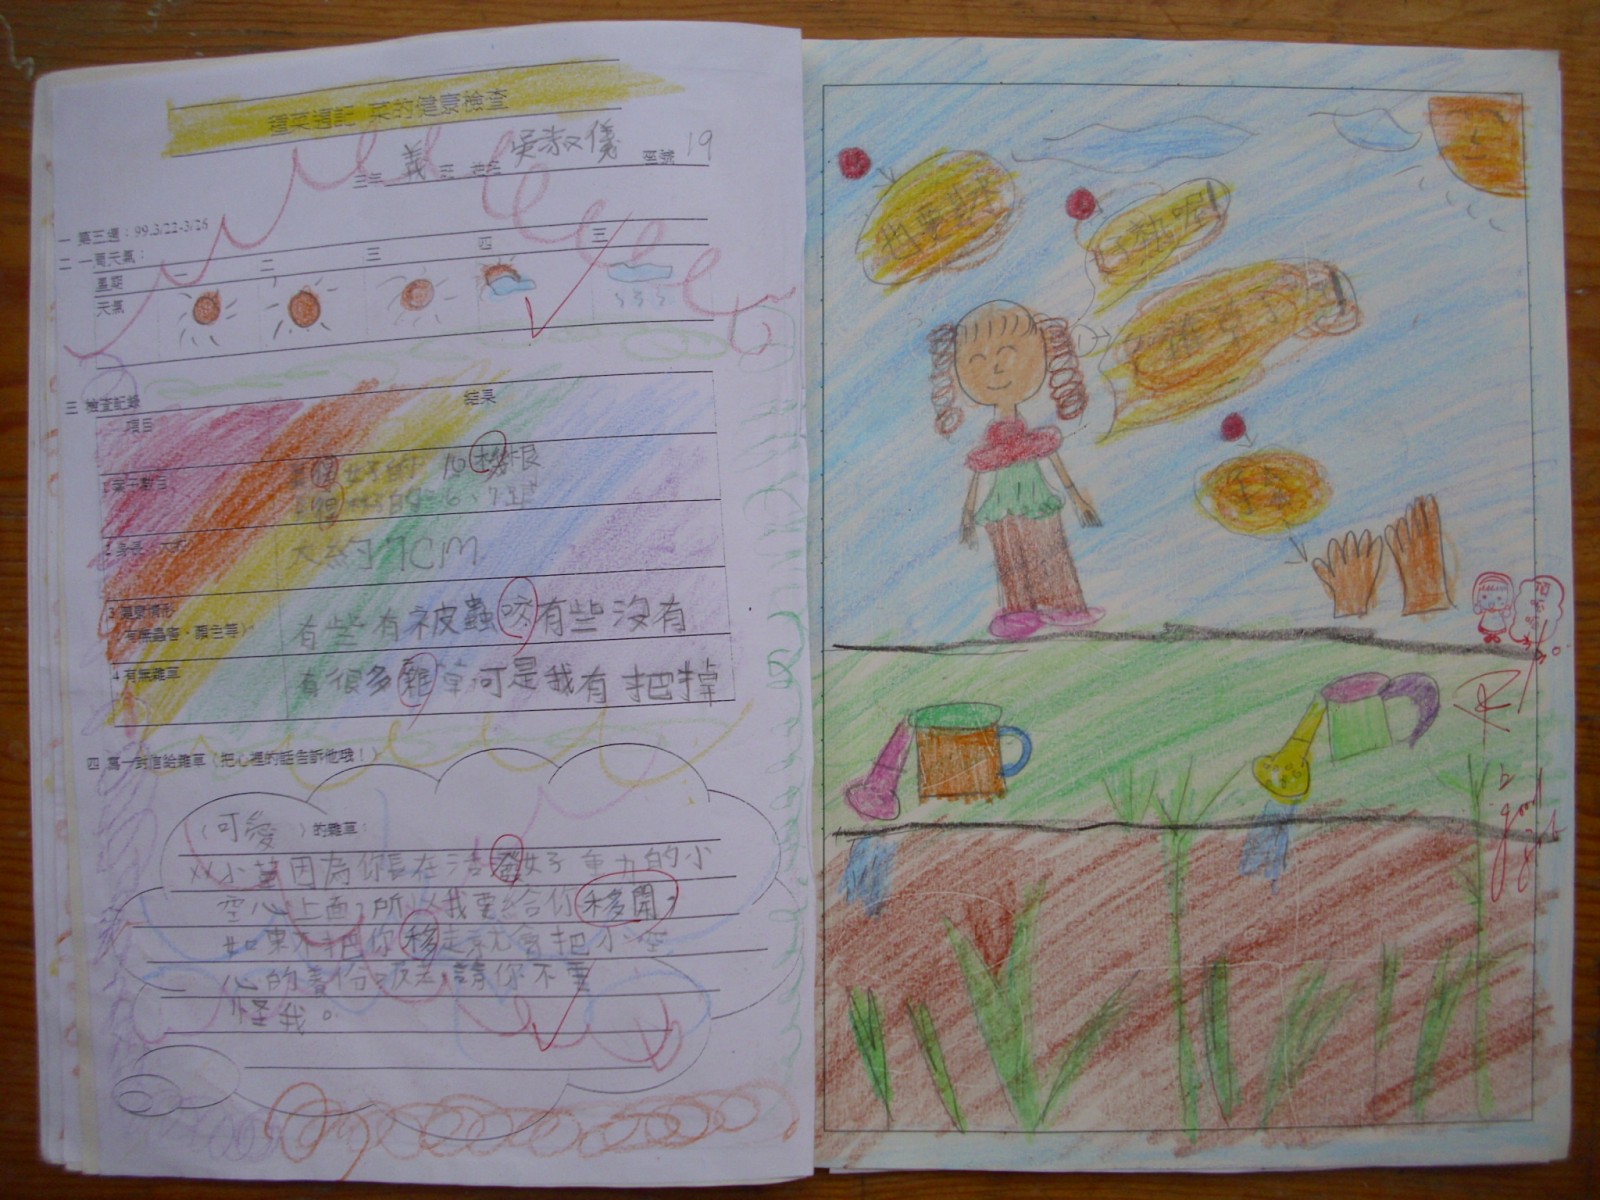 種菜週記 菜的健康檢查
三年 義 班 姓名 吳淑儀 座號 19
一 第三週：99.3/22-3/26
二 一周天氣：
星期 一 二 三 四 三
天氣
三 檢查記錄
項目 結果
1葉子數目
大約7CM
3 蟲害情形
(有無蟲害、顏色等) 有些有被蟲咬有些沒有
4 有無雜草 有很多雜草可是我有把掉
四 寫一封信給雜草（把心裡的話告訴他哦！）
（可愛 ）的雜草：
小草因為你長在活潑好動的小
空心上面，所以我要給你移開，
如果不把你移走就會把小空
心的養份吸走，請你不要
怪我。
也要喝水
好熱呢!
手套
good